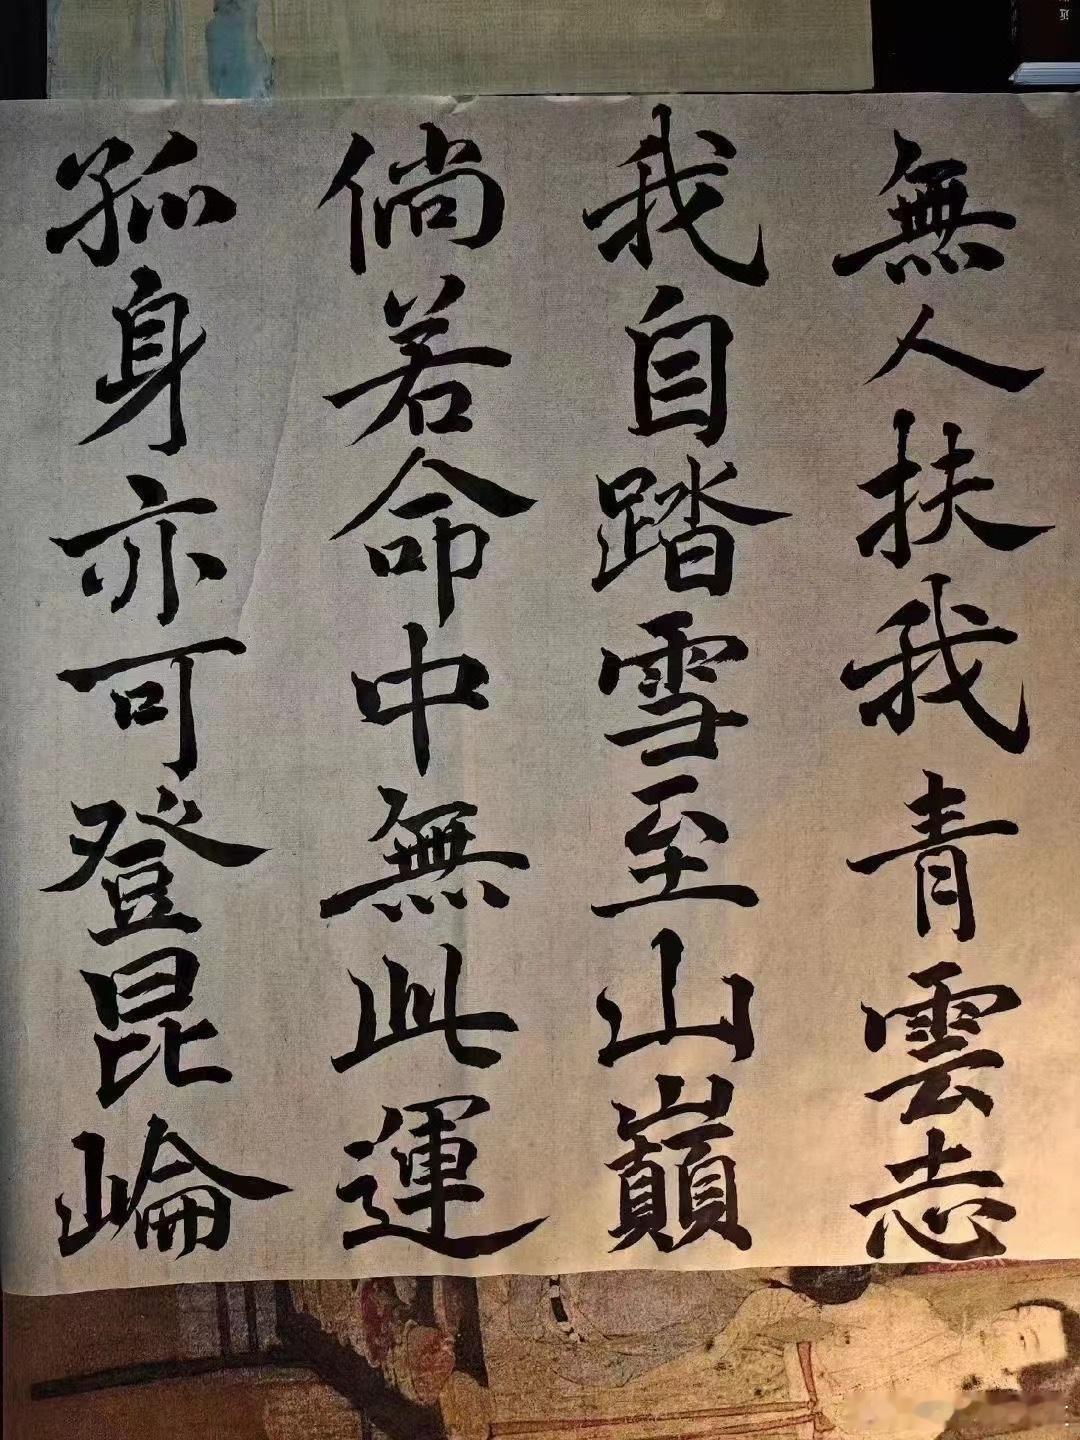 無人扶我青雲志
我自踏雪至山巔
倘若命中無此運
孤身亦可登昆崘